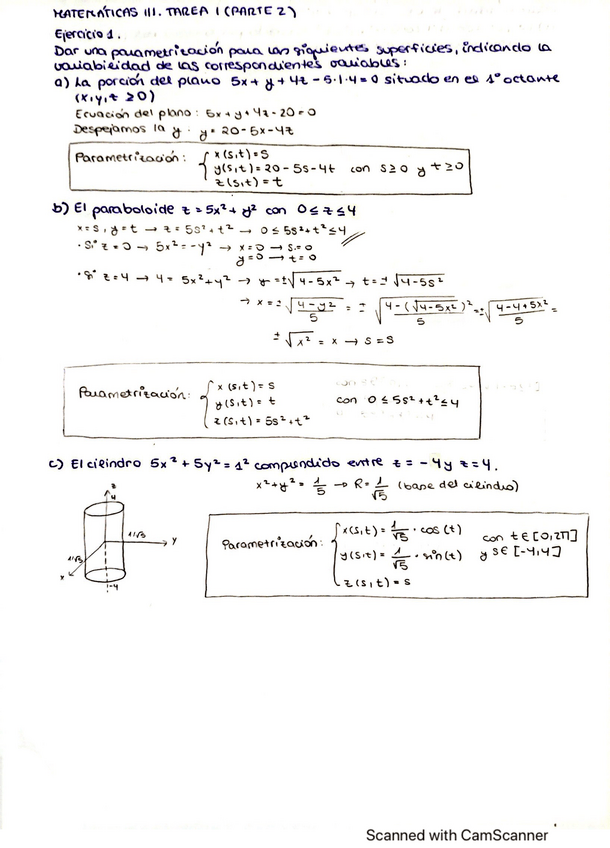 MATEMÁTICAS III. TAREA 1 (PARTE 2)
Ejercicio 1.
Dar una parametrización para las siguientes superficies, indicando la
variabilidad de las correspondientes variables:
a) La porción del plano 5x + y + 4z - 5·1·4 = 0 situado en el 1º octante
(x,y,z ≥0)
Ecuación del plano: 5x + y + 4z - 20 = 0
Despejamos la y. y = 20 - 5x - 4z
Parametrización: { x(s,t) = s
y(s,t) = 20 - 5s - 4t con s≥0 y t≥0
z(s,t) = t
b) El paraboloide z = 5x² + y² con 0 ≤ z ≤ 4
x = s, y = t → z = 5s² + t² → 0 ≤ 5s² + t² ≤ 4
· Si z = 0 → 5x² = -y² → x = 0 → s = 0
y = 0 → t = 0
· Si z = 4 → 4 = 5x² + y² → y = ±√(4 - 5x²) → t = ±√(4 - 5s²)
→ x = ±√((4 - y²)/5) = ±√((4 - (√(4 - 5x²))²)/5) = ±√((4 - 4 + 5x²)/5) =
±√x² = x → s = s
Parametrización: { x(s,t) = s
y(s,t) = t con 0 ≤ 5s² + t² ≤ 4
z(s,t) = 5s² + t²
c) El cilindro 5x² + 5y² = 1² comprendido entre z = -4 y z = 4.
x² + y² = 1/5 → R = 1/√5 (base del cilindro)
z
4
1/√5
y
1/√5
x
-4
Parametrización: { x(s,t) = 1/√5 · cos(t) con t ∈ [0,2π]
y(s,t) = 1/√5 · sin(t) y s ∈ [-4,4]
z(s,t) = s
Scanned with CamScanner